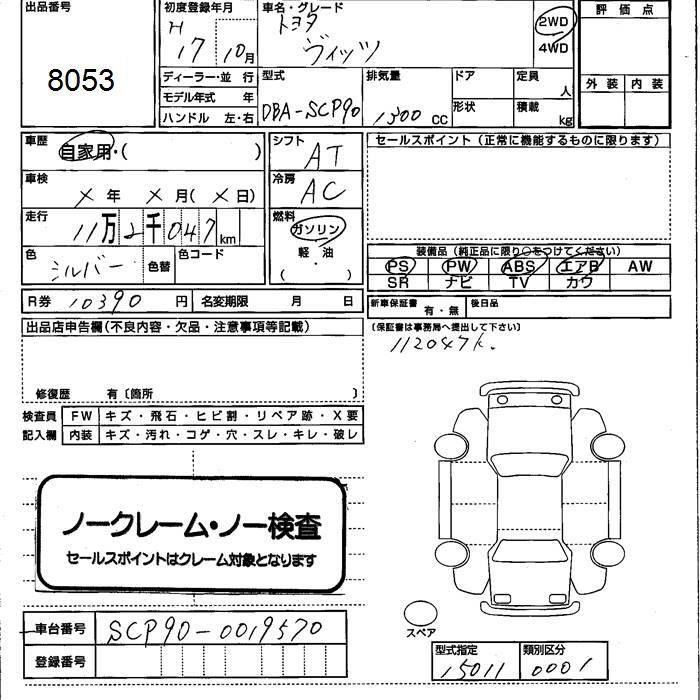 出品番号
8053
初度登録年月
H
17 10月
車名・グレード
トヨタ
ヴィッツ
2WD
4WD
評価点
外装 内装
ディーラー・並行
モデル年式 年
ハンドル 左・右
型式
DBA-SCP90
排気量
1300 CC
ドア
形状
定員
人
積載
kg
車歴
自家用・( )
シフト
AT
セールスポイント(正常に機能するものに限ります)
車検
X 年 X 月( X 日)
冷房
AC
走行
11万2千047km
燃料
ガソリン
軽・油
( )
色
シルバー
色替
色コード
装備品(純正品に限り○をつけてください)
PS PW ABS エアB AW
SR ナビ TV カワ
R券 10390 円
名変期限 月 日
新車保証書
有・無
後日品
(保証書は事務局へ提出して下さい)
112047k.
出品店申告欄(不良内容・欠品・注意事項等記載)
修復歴 有〔箇所 〕
検査員
記入欄
FW キズ・飛石・ヒビ割・リペア跡・X要
内装 キズ・汚れ・コゲ・穴・スレ・キレ・破レ
ノークレーム・ノー検査
セールスポイントはクレーム対象となります
スペア
車台番号 SCP90-0019570
登録番号
型式指定
15011
類別区分
0001